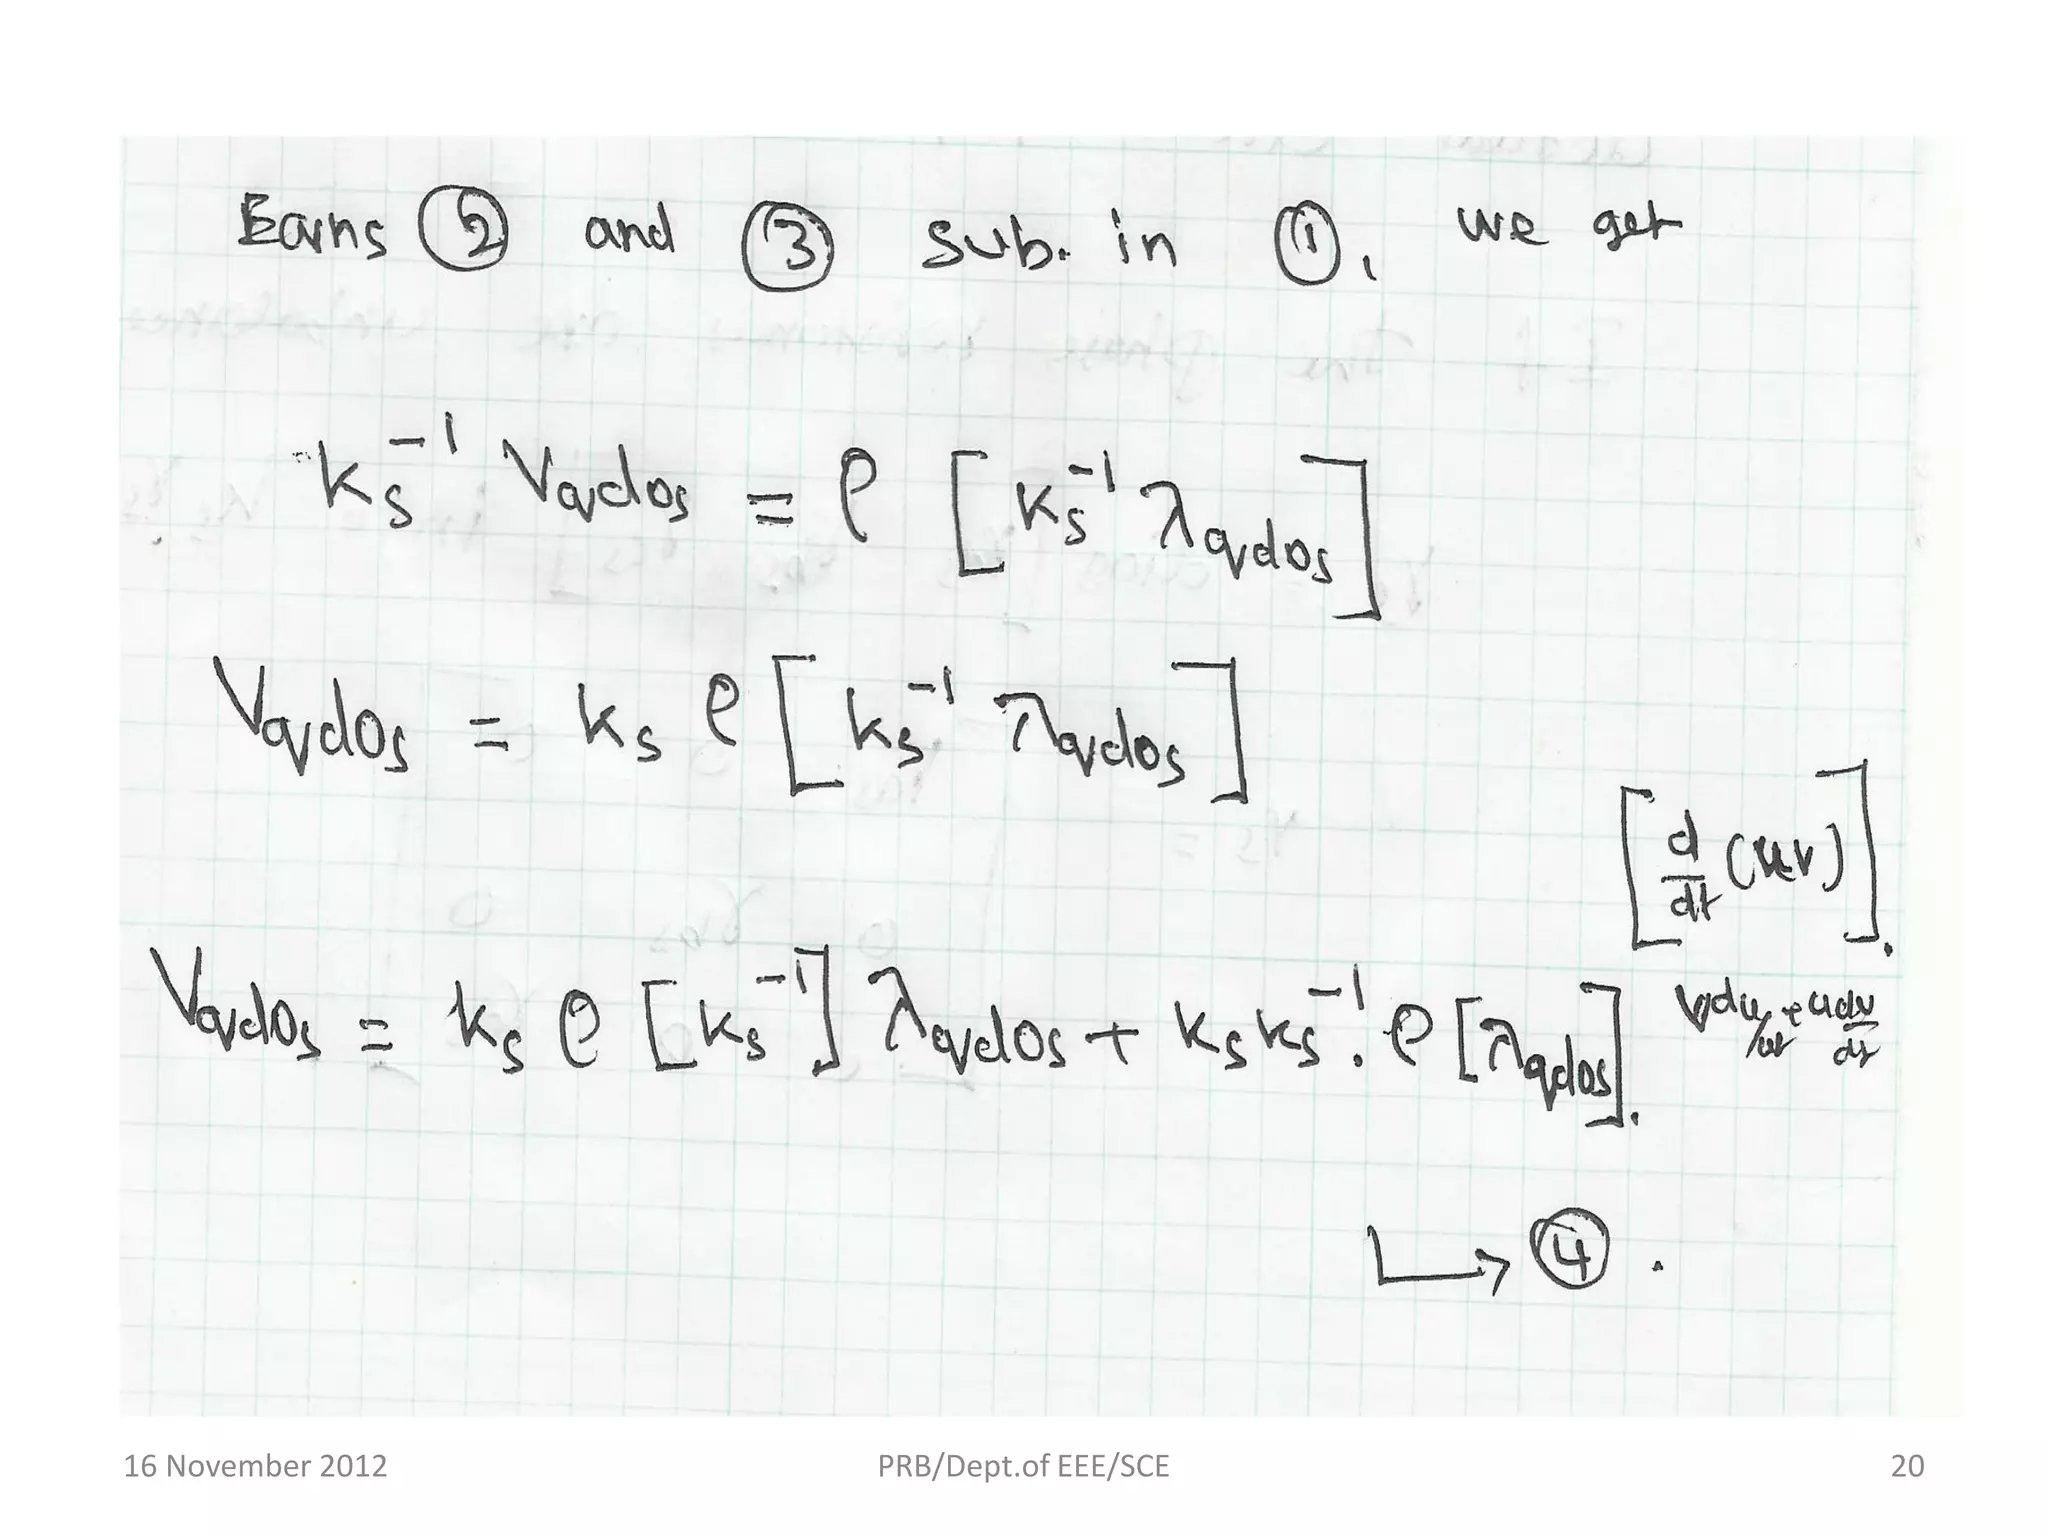 Eqns ② and ③ sub. in ①, we get
Ks⁻¹ Vqdos = ρ [Ks⁻¹ λqdos]
Vqdos = Ks ρ [Ks⁻¹ λqdos]
[d/dt (uv)].
Vqdos = Ks ρ [Ks⁻¹] λqdos + Ks Ks⁻¹. ρ [λqdos]. vdu/dt + udv/dt
↳ ④ .
16 November 2012 PRB/Dept.of EEE/SCE 20